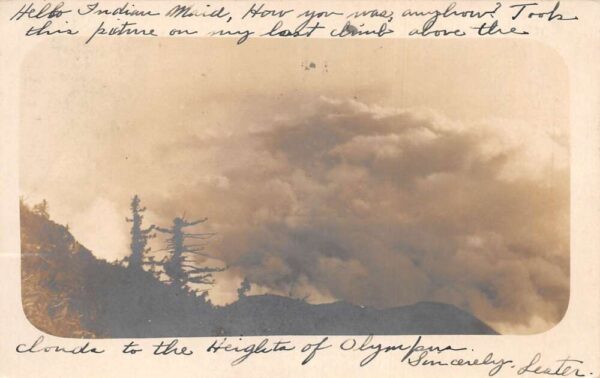 Hello Indian Maid, How you was, anyhow? Took
this picture on my last climb above the
clouds to the Heights of Olympus.
Sincerely. Lester.